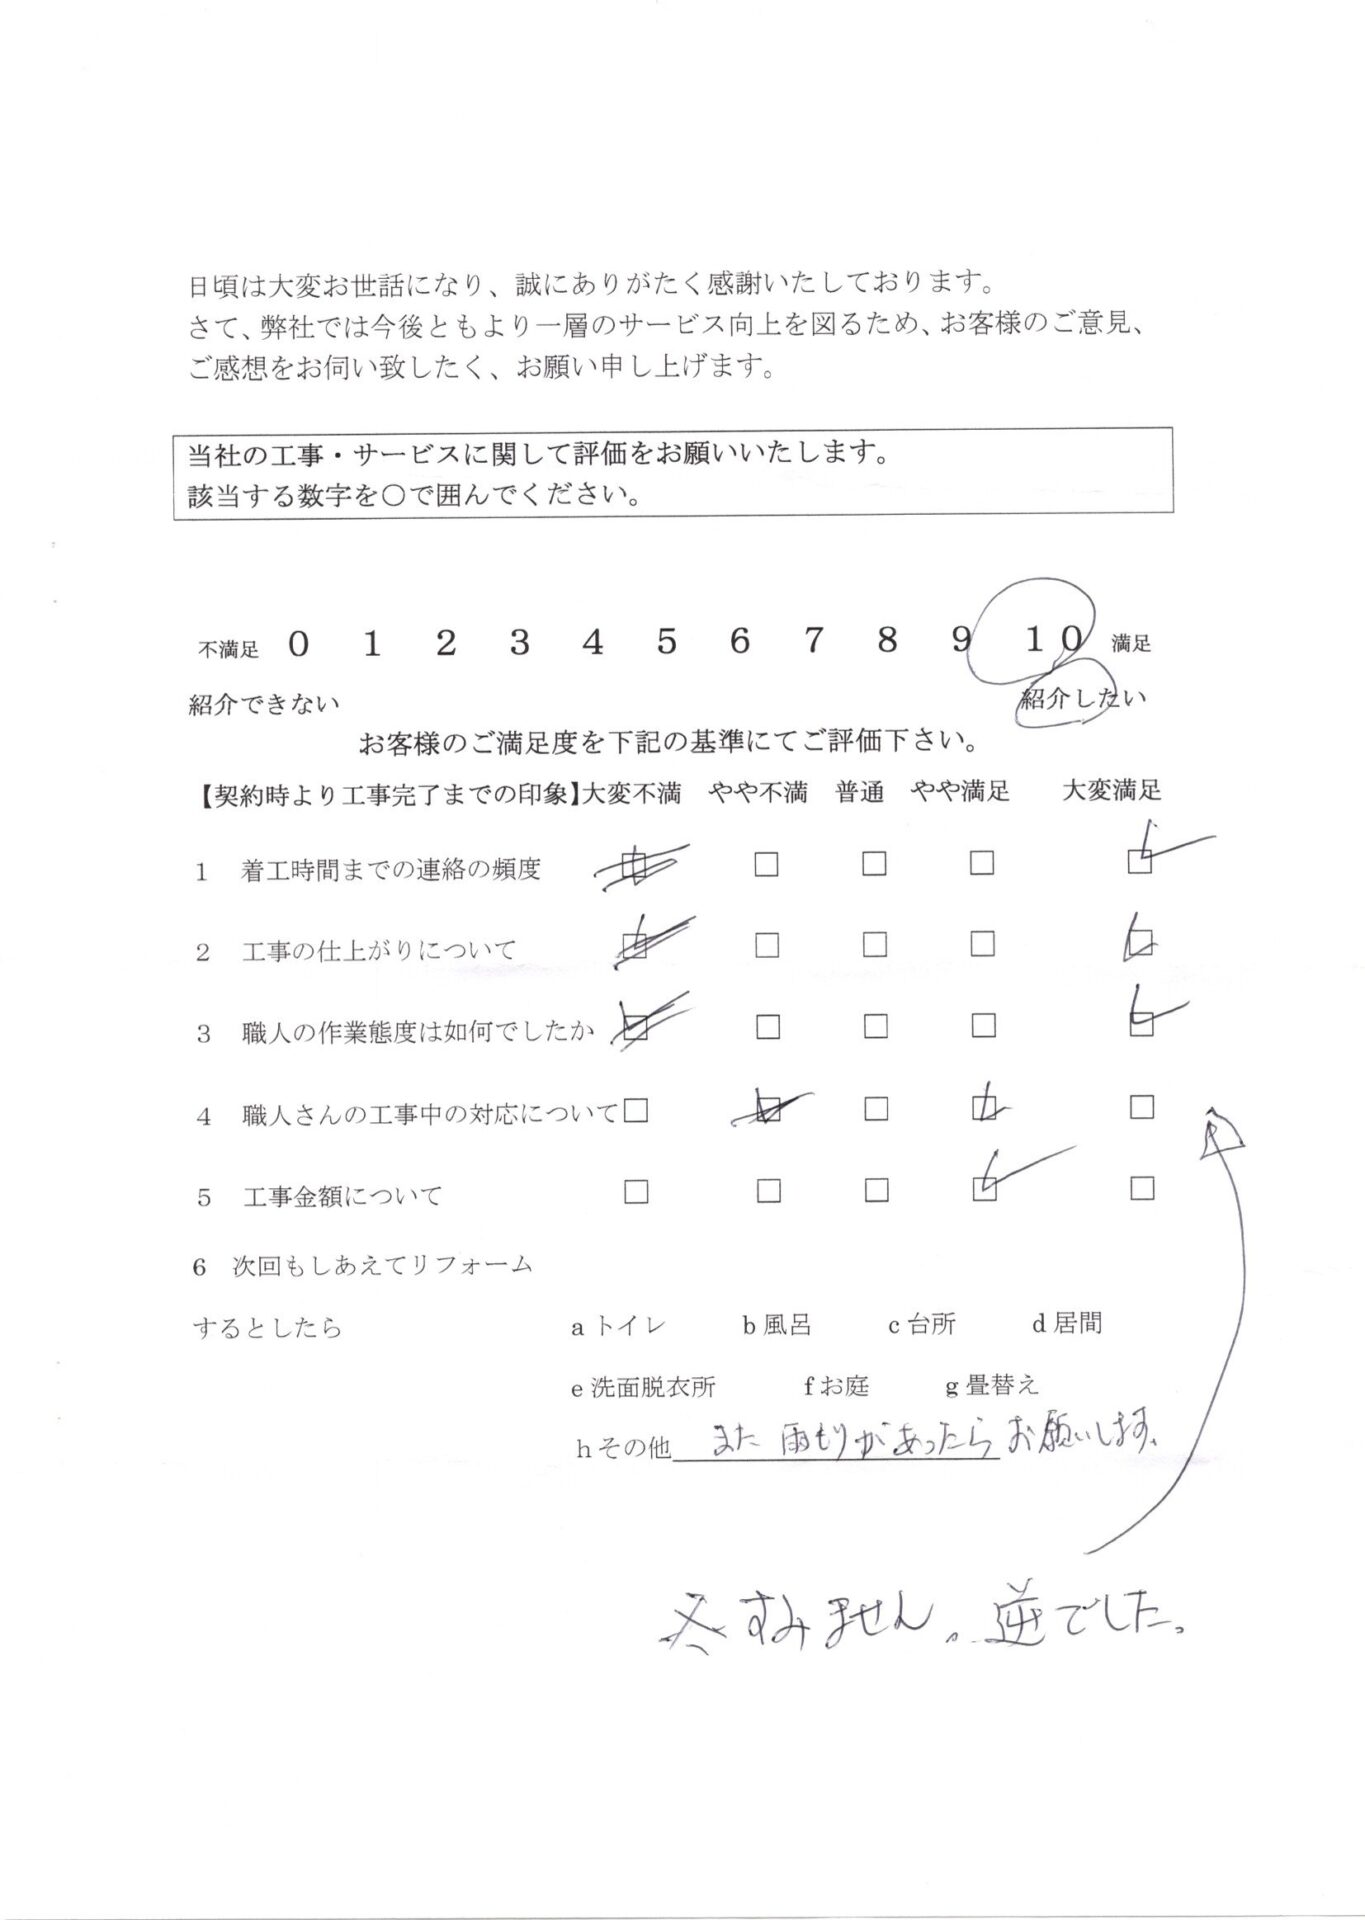 日頃は大変お世話になり、誠にありがたく感謝いたしております。
さて、弊社では今後ともより一層のサービス向上を図るため、お客様のご意見、
ご感想をお伺い致したく、お願い申し上げます。
当社の工事・サービスに関して評価をお願いいたします。
該当する数字を〇で囲んでください。
不満足 0 1 2 3 4 5 6 7 8 9 10 満足
紹介できない 紹介したい
お客様のご満足度を下記の基準にてご評価下さい。
【契約時より工事完了までの印象】大変不満 やや不満 普通 やや満足 大変満足
1 着工時間までの連絡の頻度 □ □ □ □ □
2 工事の仕上がりについて □ □ □ □ □
3 職人の作業態度は如何でしたか □ □ □ □ □
4 職人さんの工事中の対応について □ □ □ □ □
5 工事金額について □ □ □ □ □
6 次回もしあえてリフォーム
するとしたら a トイレ b 風呂 c 台所 d 居間
e 洗面脱衣所 f お庭 g 畳替え
h その他 また雨もりがあったらお願いします。
すみません。逆でした。